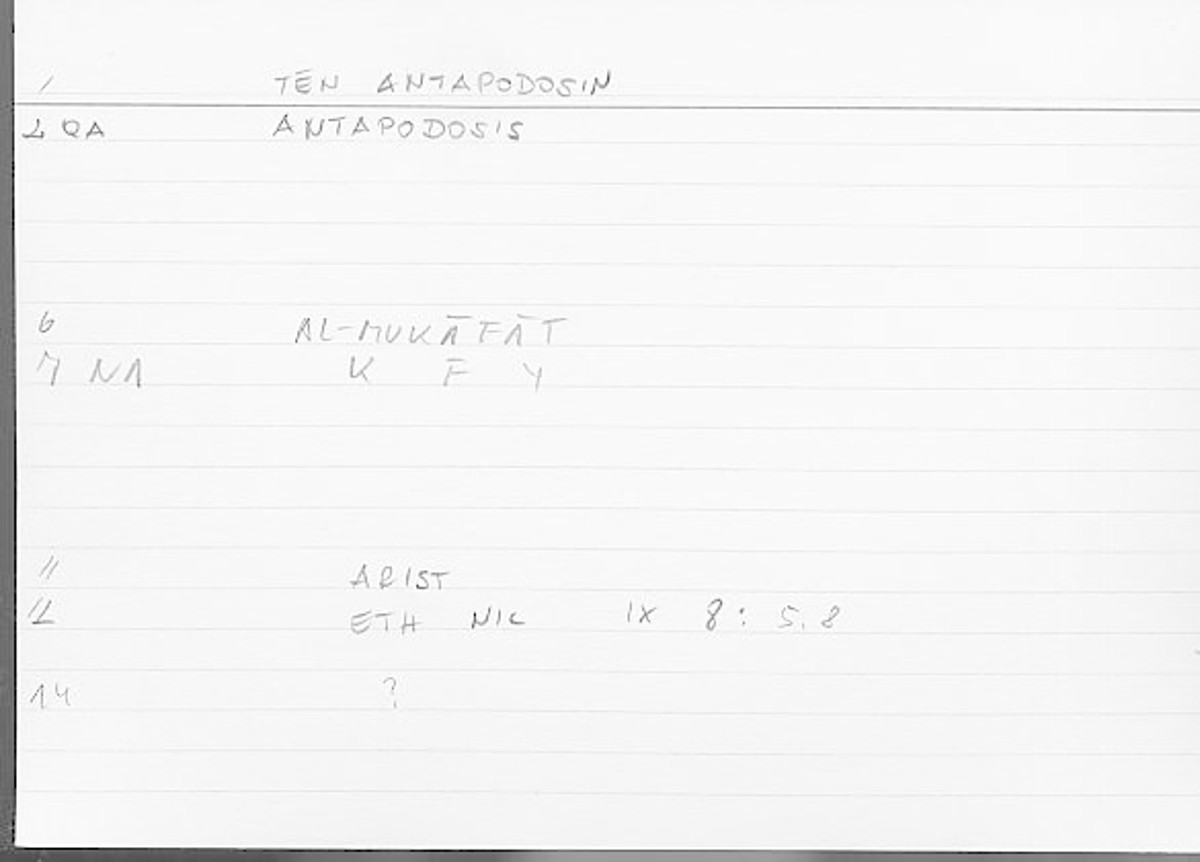 1 TĒN ANTAPODOSIN
2 QA ANTAPODOSIS
6 AL-MUKĀFĀT
7 NA K F Y
11 ARIST
12 ETH NIC IX 8: 5.8
14 ?